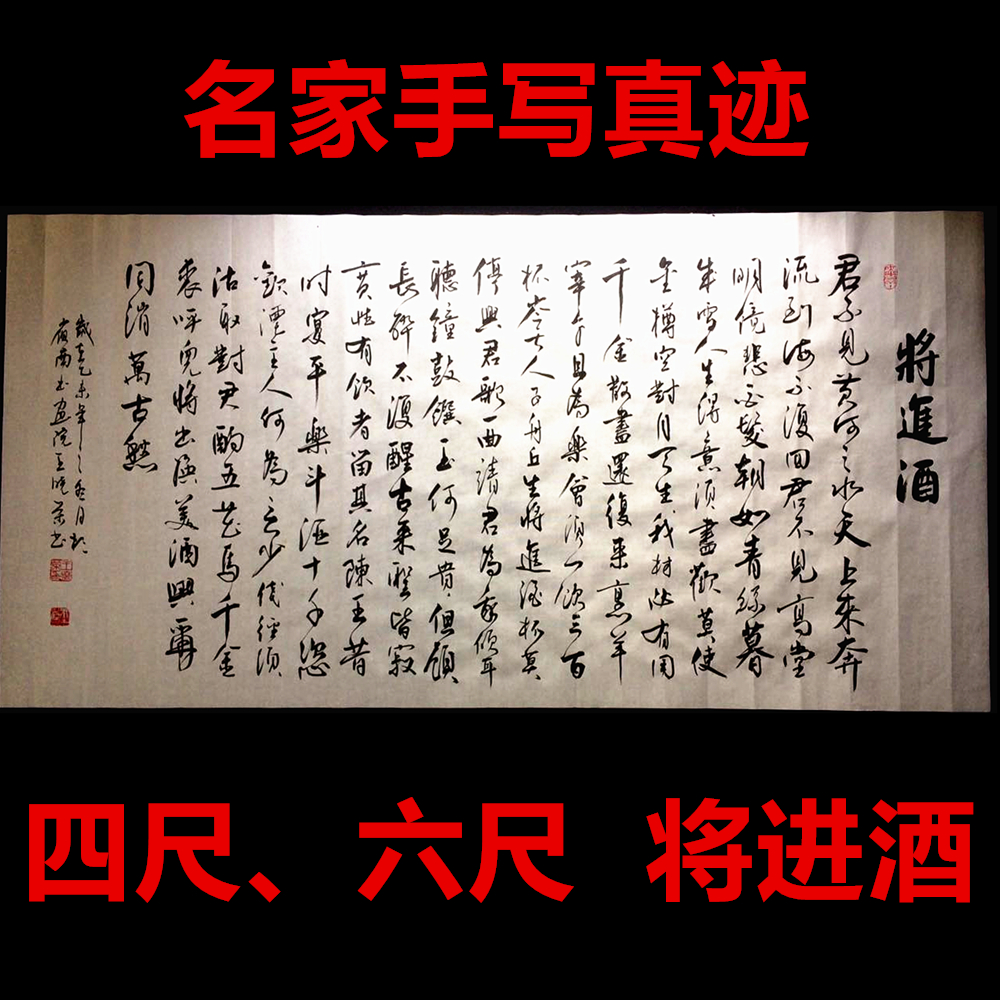 名家手写真迹
將進酒
君不見黃河之水天上來奔
流到海不復回君不見高堂
明鏡悲白髮朝如青絲暮
成雪人生得意須盡歡莫使
金樽空對月天生我材必有用
千金散盡還復來烹羊
宰牛且為樂會須一飲三百
杯岑夫人子丹丘生將進酒杯莫
停與君歌一曲請君為我傾耳
聽鐘鼓饌玉何足貴但願
長醉不復醒古來聖皆寂
寞惟有飲者留其名陳王昔
时宴平樂斗酒十千恣
歡謔主人何為言少錢徑須
沽取對君酌五花馬千金
裘呼兒將出換美酒與爾
同消萬古愁
歲在乙未年之冬月於
嶺南書畫院王曉書
四尺、六尺 将进酒